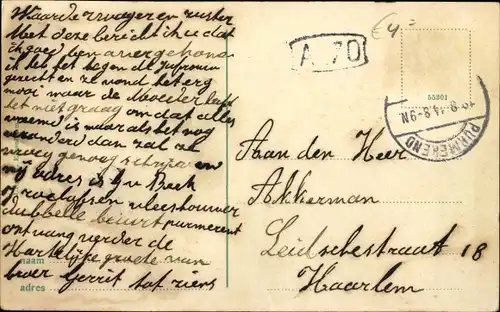 Waarde zwager en zuster
Met deze bericht ik u dat
ik goed ben overgekomen
ik heb het tegen de Jufvrouw
gezegt en ze vond het erg
mooi maar de Moeder
het niet graag om dat alles
vreemd is maar als het nog
veranderd dan zal ze
vroeg genoeg schrijven
mij adres is G v Beek
p/ Roelofsen vleeshouwer
dubbelle buurt purmerent
ontvang verder de
Hartelijke groete van
broer Gerrit tot ziens
naam
adres
A 70
€4=
55301
18.8.14.8-9N
PURMEREND
Aan den Heer
Akkerman
Leidschestraat 18
Haarlem